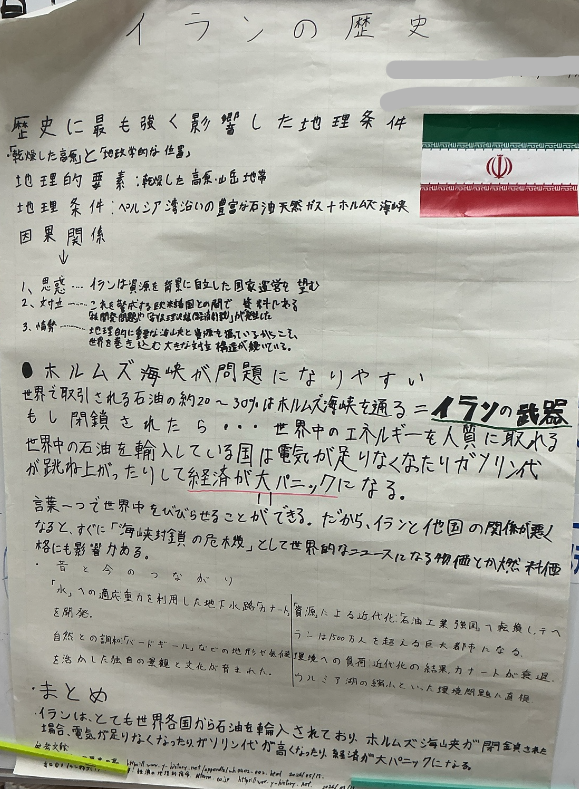 イランの歴史
歴史に最も強く影響した地理条件
・「乾燥した高原」と「地政学的な位置」
地理的要素:乾燥した高原・山岳地帯
地理条件:ペルシア湾沿いの豊富な石油天然ガス+ホルムズ海峡
因果関係
↓
1、思惑…イランは資源を背景に自立した国家運営を望む
2、対立……これを警戒する欧米諸国との間で
3、情勢……地理的に重要な海峡と資源を握っているからこそ、
世界を巻き込む大きな対立構造が続いている。
●ホルムズ海峡が問題になりやすい
世界で取引される石油の約20〜30%はホルムズ海峡を通る=イランの武器
もし閉鎖されたら...世界中のエネルギーを人質に取れる
世界中の石油を輸入している国は電気が足りなくなたりガソリン代
が跳ね上がったりして経済が大パニックになる。
言葉一つで世界中をびびらせることができる。だから、イランと他国の関係が悪く
なると、すぐに「海峡封鎖の危機」として世界的なニュースになる物価とか燃料価
格にも影響力ある。
・昔と今のつながり
「水」への適応重力を利用した地下水路「カナート」
を開発。
自然との調和「バードギール」などの地形や気候
を活かした独自の景観と文化が育まれた。
「資源」による近代化「石油工業強国」へ転換し、テヘ
ランは1500万人を超える巨大都市になる。
環境への負荷 近代化の結果、カナートが衰退、
ウルミア湖の縮小といった環境問題に直面
・まとめ
・イランは、とても世界各国から石油を輸入されており、ホルムズ海峡が閉鎖された
場合、電気が足りなくなったり、ガソリン代が高くなったり、経済が大パニックになる。
参考文献